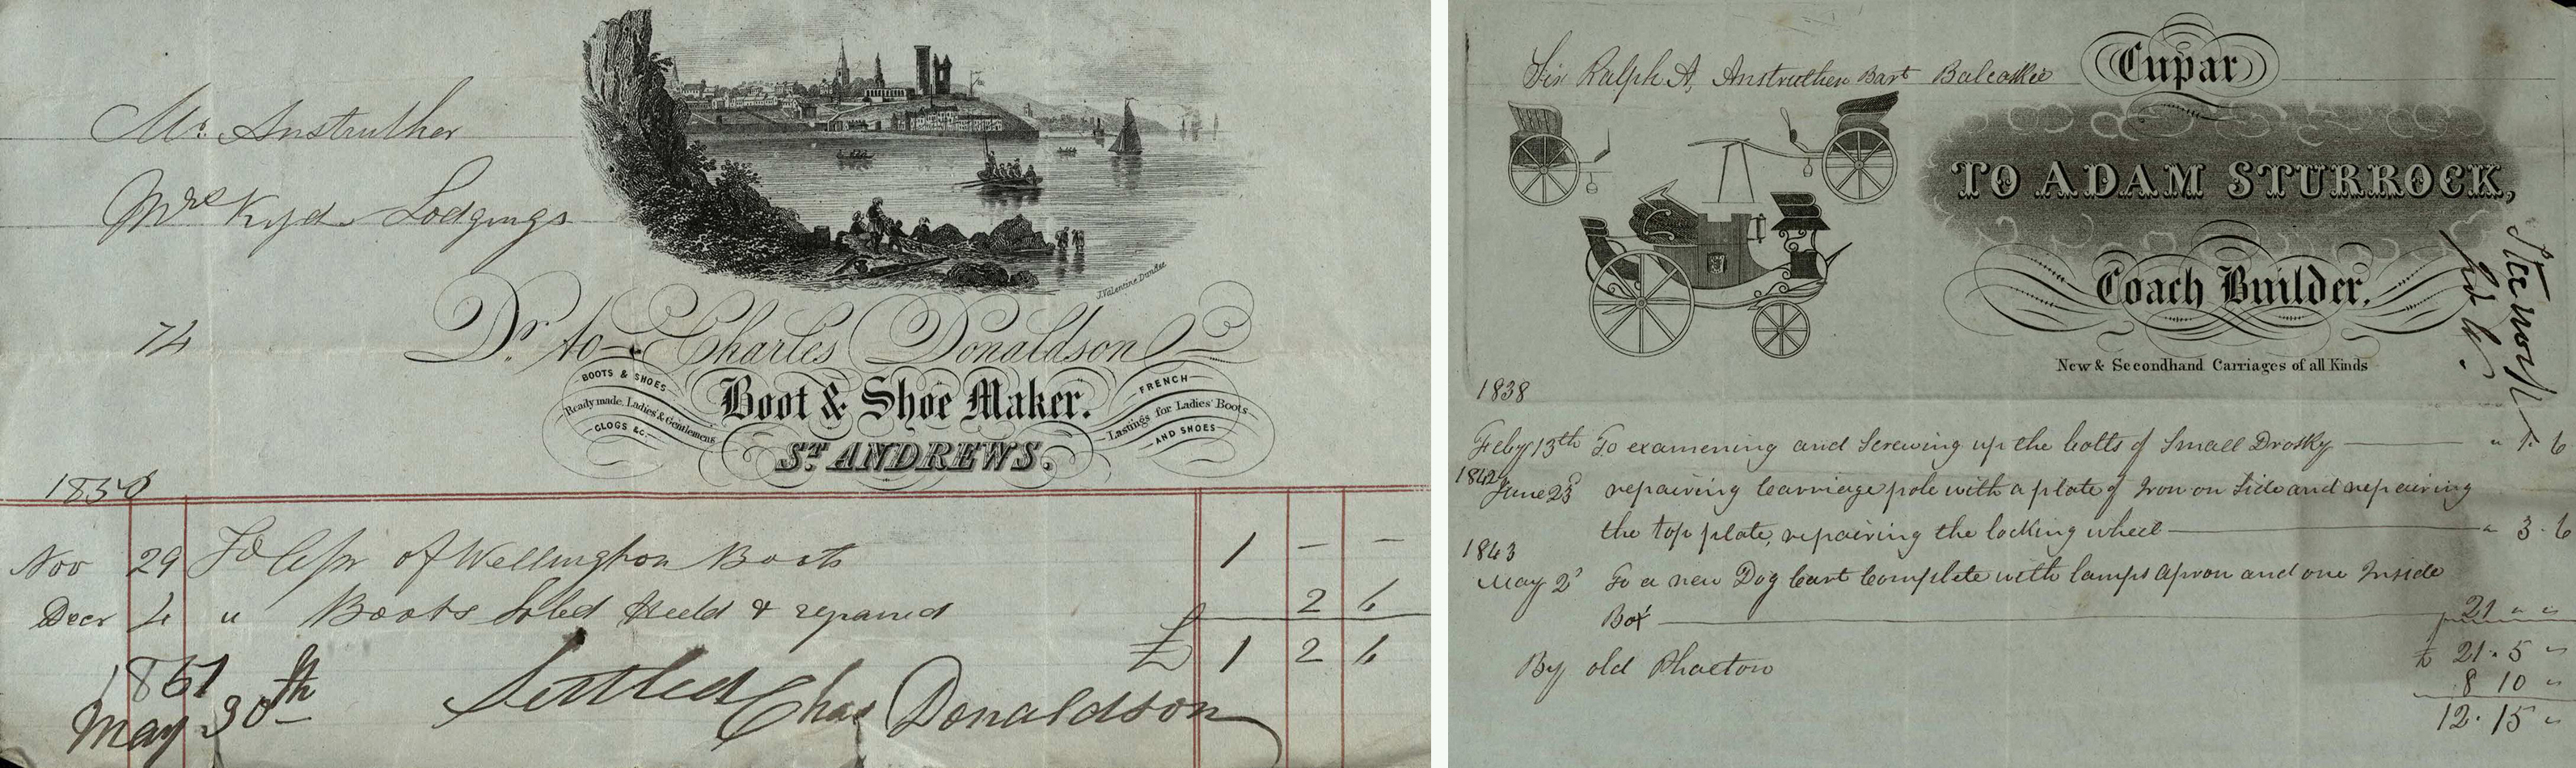 Mr. Anstruther
Mrs Kyd Lodgings
74
J. Valentine Dundee
Dr. to Charles Donaldson
BOOTS & SHOES
Ready made, Ladies' & Gentlemens
CLOGS &c.
Boot & Shoe Maker.
FRENCH
Lastings for Ladies' Boots
AND SHOES
ST. ANDREWS.
1850
Nov 29 To 1 pr of Wellington Boots 1 - -
Decr 4 " Boots soled heeld & repaired 2 6
£ 1 2 6
1851
May 30th
Settled Chas Donaldson
Sir Ralph A, Anstruther Bart Balcaskie
Cupar
TO ADAM STURROCK,
Coach Builder.
New & Secondhand Carriages of all Kinds
1838
Feby 13th To examening and Screwing up the bolts of Small Drosky " 1. 6
1842
June 23d repairing Carriage pole with a plate of Iron on Side and repairing
the top plate, repairing the locking wheel " 3. 6
1843
May 2d To a new Dog Cart Complete with lamps apron and one Inside
Box 21 " "
£ 21. 5 "
By old Phaeton 8 10 "
12. 15 "